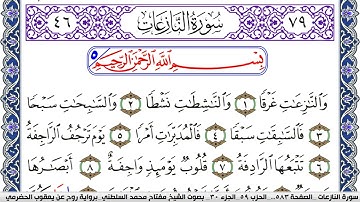 ٧٩ سُورَةُ النَّازِعَاتِ ٤٦
بِسْمِ اللَّهِ الرَّحْمَٰنِ الرَّحِيمِ
وَالنَّٰزِعَٰتِ غَرْقًا ١ وَالنَّٰشِطَٰتِ نَشْطًا ٢ وَالسَّٰبِحَٰتِ سَبْحًا
٣ فَالسَّٰبِقَٰتِ سَبْقًا ٤ فَالْمُدَبِّرَٰتِ أَمْرًا ٥ يَوْمَ تَرْجُفُ الرَّاجِفَةُ
٦ تَتْبَعُهَا الرَّادِفَةُ ٧ قُلُوبٌ يَوْمَئِذٍ وَاجِفَةٌ ٨ أَبْصَٰرُهَا
سورة النازعات الصفحة ٥٨٣... الحزب ٥٩ الجزء ٣٠.. بصوت الشيخ مفتاح محمد السلطني برواية روح عن يعقوب الحضرمي